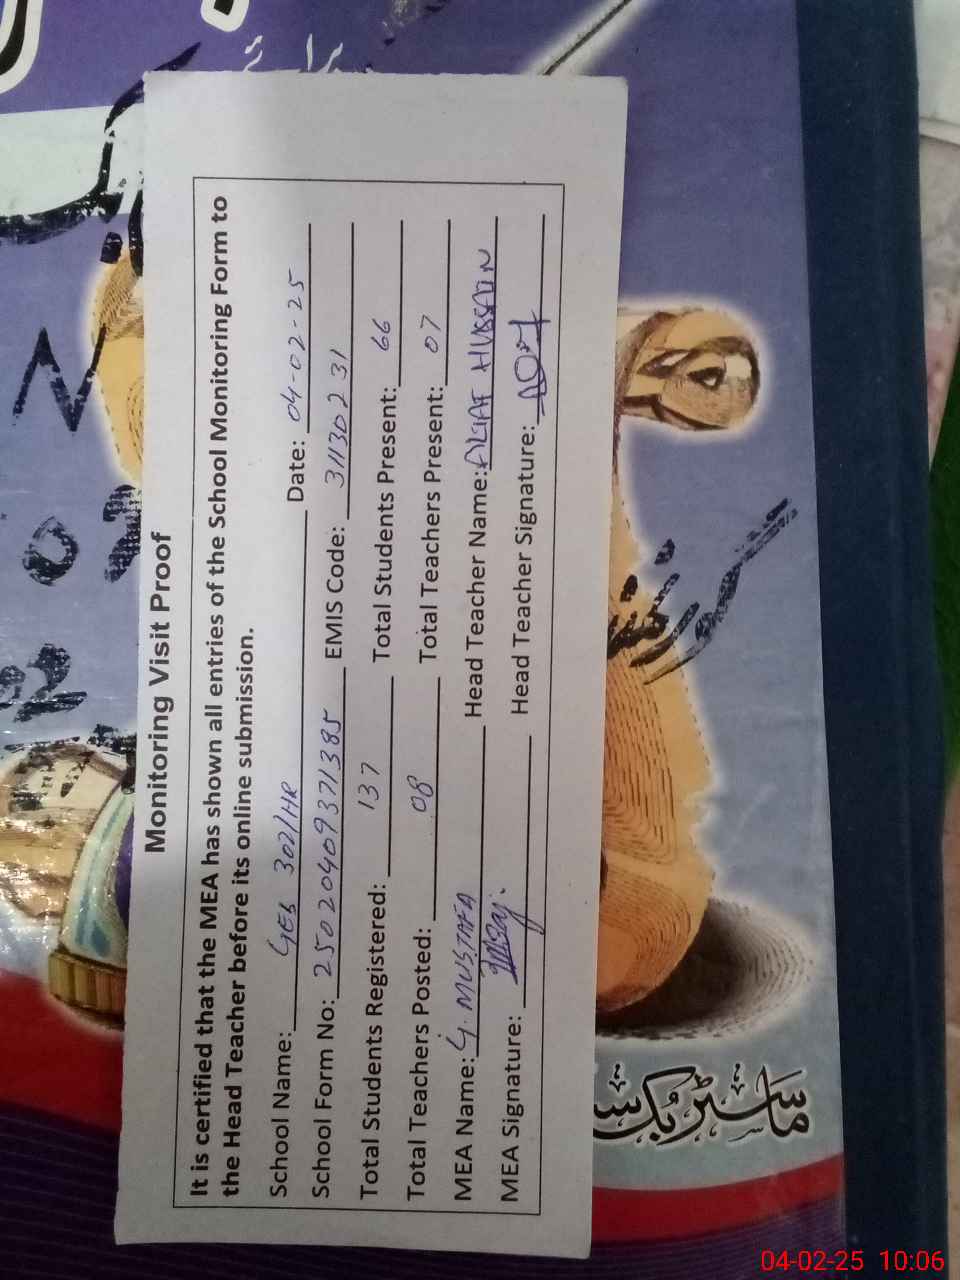 برائے
Monitoring Visit Proof
It is certified that the MEA has shown all entries of the School Monitoring Form to
the Head Teacher before its online submission.
School Name: GES 302/HR Date: 04-02-25
School Form No: 25020409371385 EMIS Code: 31130231
Total Students Registered: 137 Total Students Present: 66
Total Teachers Posted: 08 Total Teachers Present: 07
MEA Name: G. MUSTAFA Head Teacher Name: ALTAF HUSSAIN
MEA Signature: Head Teacher Signature:
ماسٹر بک
04-02-25 10:06